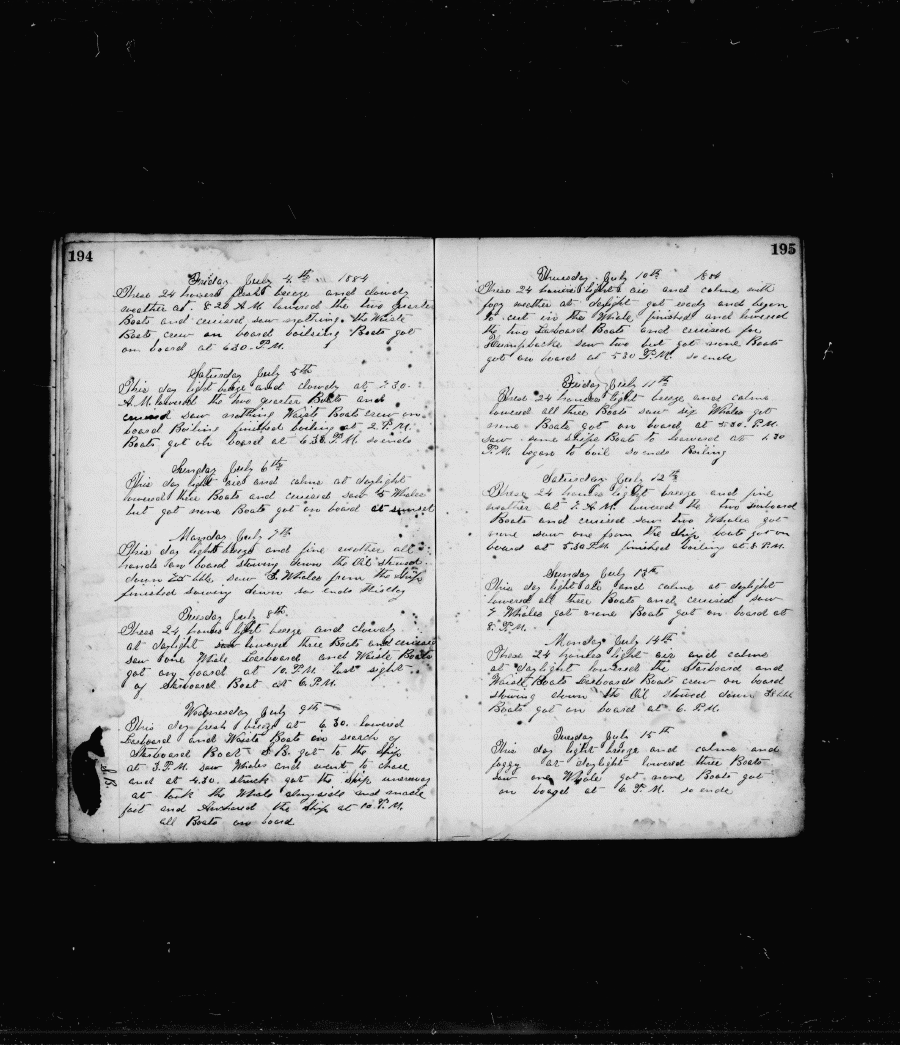 194
Friday July 4th 1884
These 24 howers fresh breeze and clowdy
weather at 8.20 A.M. lowered the two quarter
Boats and cruised saw nothing. the Waiste
Boats crew on board boilring Boats got
on board at 6.30. P.M.
Saturday July 5th
This day light breeze and clowdy at 7.30.
A.M. lowered the two quarter Boats and
cruised saw nothing Waists Boats crew on
board Boiling finished boiling at 2. P.M.
Boats got on board at 6.30. P.M. so ends
Sunday July 6th
This day light airs and calms at daylight
lowered three Boats and cruised saw 5 Whales
but got none Boats got on board at sunset
Monday July 7th
This day light breeze and fine weather all
hands on board stowing down the Oil stowed
down 25 bbl. saw 3. Whales from the ship
finished stowing down so ends this day
Tuesday July 8th
These 24 howers light breeze and clowdy
at daylight lowered three Boats and cruised
saw one Whale Larboard and Waiste Boats
got on board at 10. P.M. last sight
of Starboard Boat at 6. P.M.
Wednesday July 9th
This day fresh breeze at 6.30. lowered
Larboard and Waist Boats in search of
Starboard Boat S.B. got to the ship
at 3. P.M. saw Whales and went to chase
and at 4.30. struck got the ship
at tenk the Whale alongside and made
fast and Anchored the ship at 10. P.M.
all Boats on board
195
Thursday July 10th
These 24 howers light airs and calms with
fogy weather at daylight got ready and began
to cut in the Whale finished and lowered
the two Larboard Boats and cruised for
Humpbacks saw two but got none Boats
got on board at 5.30 P.M. so ends
Friday July 11th
These 24 howers light breeze and calms
lowered all three Boats saw six Whales got
none Boats got on board at 5.30. P.M.
saw some Ships Boats to leeward at 1.30
P.M. began to boil so ends Boiling
Saturday July 12th
These 24 howers light breeze and fine
weather at 7. A.M. lowered the two
Boats and cruised saw two Whales got
none saw one from the Ship. boats got on
board at 5.30 P.M. finished boiling at 8. P.M.
Sunday July 13th
This day light airs and calms at daylight
lowered all three Boats and cruised saw
7 Whales got none Boats got on board at
8. P.M.
Monday July 14th
These 24 howers light air and calms
at daylight lowered the Starboard and
Waiste Boats Larboard Boats crew on board
stowing down the Oil stowed down bbl
Boats got on board at 6. P.M.
Tuesday July 15th
This day light breeze and calms and
foggy at daylight lowered three Boats
saw one Whale got none Boats got
on board at 6. P.M. so ends